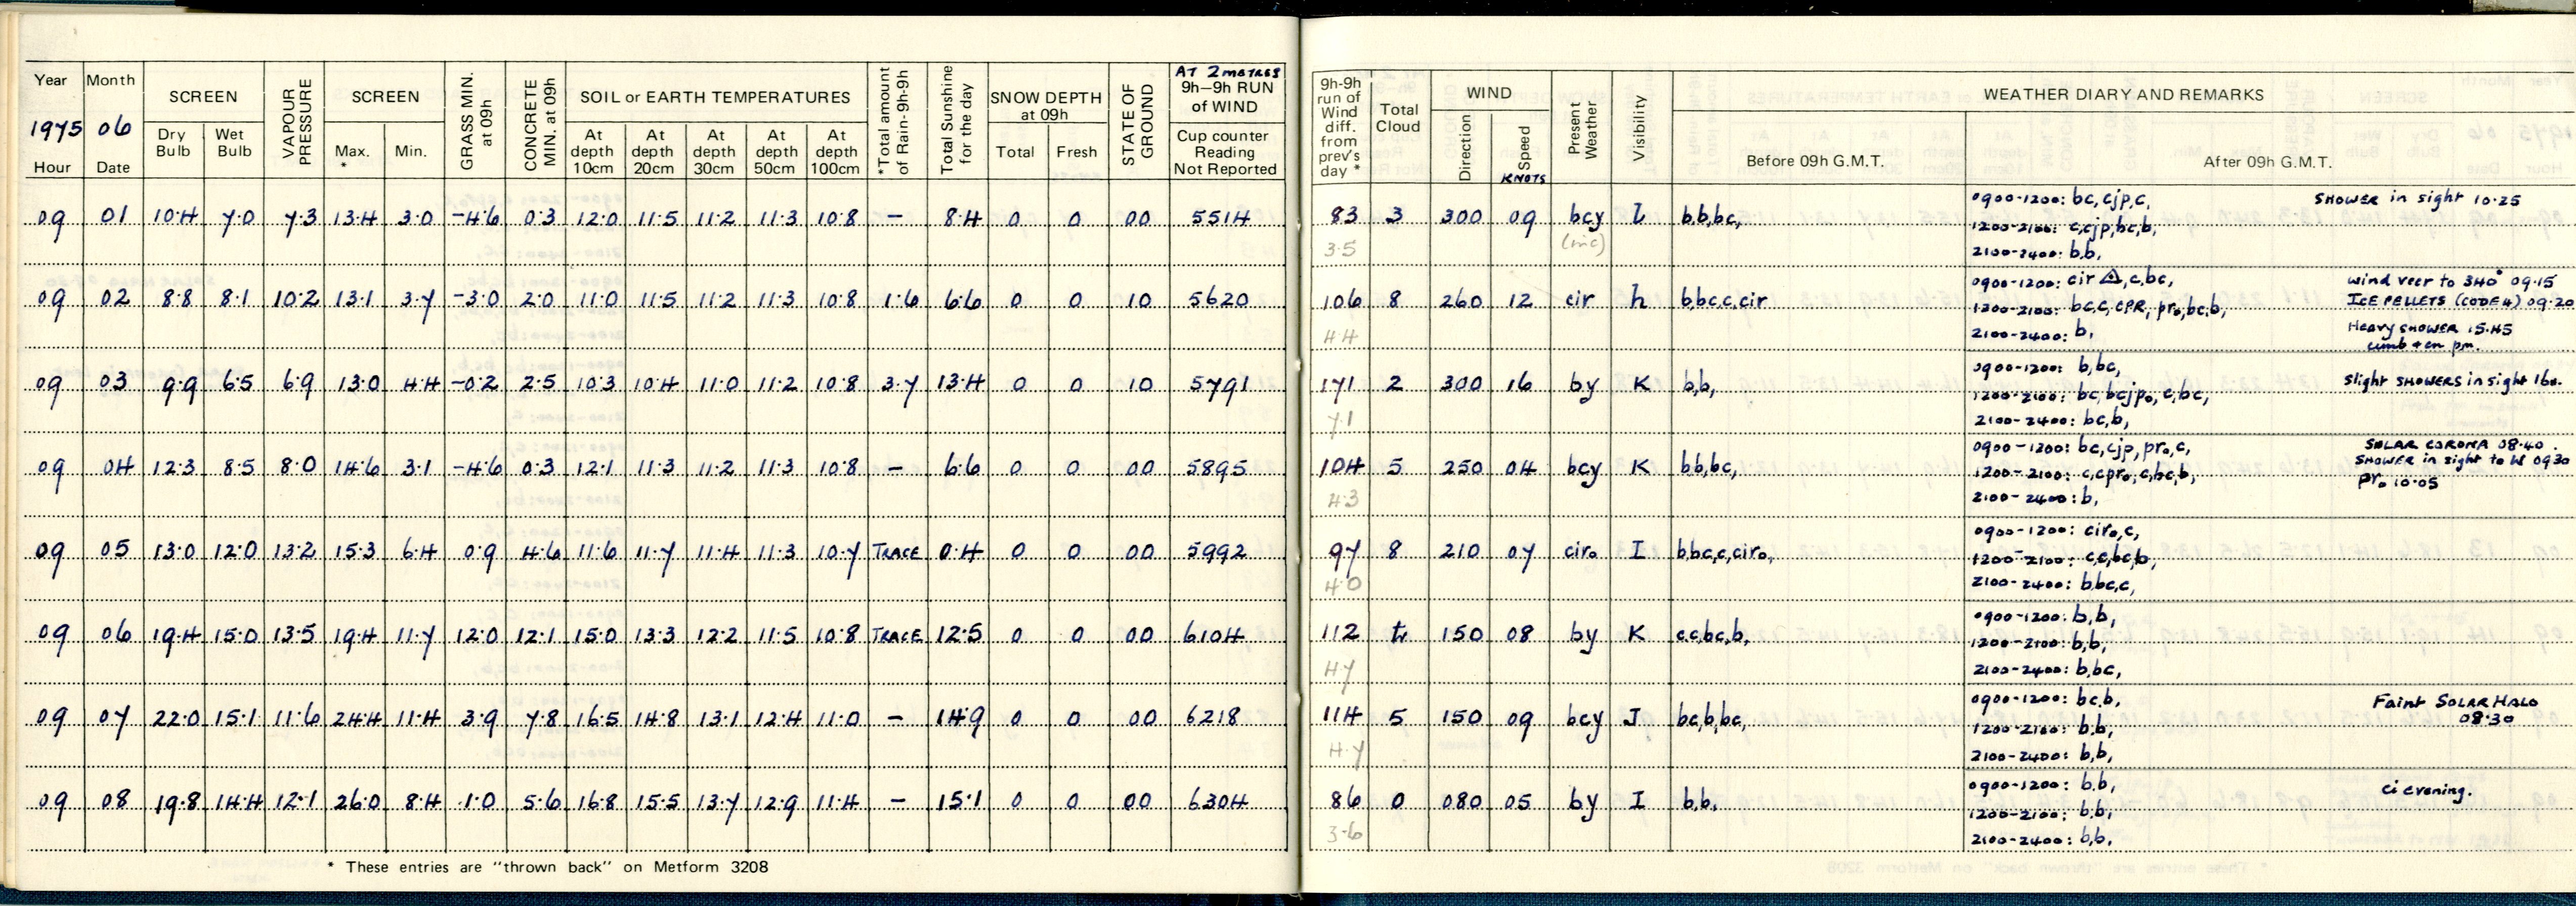 Year Month SCREEN VAPOUR PRESSURE SCREEN GRASS MIN. at 09h CONCRETE MIN. at 09h SOIL or EARTH TEMPERATURES *Total amount of Rain-9h-9h Total Sunshine for the day SNOW DEPTH at 09h STATE OF GROUND AT 2 METRES 9h—9h RUN of WIND
1975 06
Hour Date Dry Bulb Wet Bulb Max. * Min. At depth 10cm At depth 20cm At depth 30cm At depth 50cm At depth 100cm Total Fresh Cup counter Reading Not Reported
09 01 10.4 7.0 7.3 13.4 3.0 -4.6 0.3 12.0 11.5 11.2 11.3 10.8 — 8.4 0 0 00 5514
09 02 8.8 8.1 10.2 13.1 3.7 -3.0 2.0 11.0 11.5 11.2 11.3 10.8 1.6 6.6 0 0 10 5620
09 03 9.9 6.5 6.9 13.0 4.4 -0.2 2.5 10.3 10.4 11.0 11.2 10.8 3.7 13.4 0 0 10 5791
09 04 12.3 8.5 8.0 14.6 3.1 -4.6 0.3 12.1 11.3 11.2 11.3 10.8 — 6.6 0 0 00 5895
09 05 13.0 12.0 13.2 15.3 6.4 0.9 4.6 11.6 11.7 11.4 11.3 10.7 TRACE 0.4 0 0 00 5992
09 06 19.4 15.0 13.5 19.4 11.7 12.0 12.1 15.0 13.3 12.2 11.5 10.8 TRACE 12.5 0 0 00 6104
09 07 22.0 15.1 11.6 24.4 11.4 3.9 7.8 16.5 14.8 13.1 12.4 11.0 — 14.9 0 0 00 6218
09 08 19.8 14.4 12.1 26.0 8.4 1.0 5.6 16.8 15.5 13.7 12.9 11.4 — 15.1 0 0 00 6304
* These entries are "thrown back" on Metform 3208
9h-9h run of Wind diff. from prev's day * Total Cloud WIND Present Weather Visibility WEATHER DIARY AND REMARKS
Direction Speed KNOTS Before 09h G.M.T. After 09h G.M.T.
83 3 300 09 bcy l b,b,bc, 0900-1200: bc,cjp,c, SHOWER in sight 10.25
3.5 (inc) 1200-2100: c,cjp,bc,b,
2100-2400: b,b,
106 8 260 12 cir h b,bc,c,cir 0900-1200: cir △,c,bc, wind veer to 340° 09.15
ICE PELLETS (CODE 4) 09.20
4.4 1200-2100: bc,c,cPR, pr₀,bc,b,
2100-2400: b, Heavy SHOWER 15.45
pm.
171 2 300 16 by K b,b, 0900-1200: b,bc, Slight SHOWERS in sight
7.1 1200-2100: bc,bcjp₀,c,bc,
2100-2400: bc,b,
104 5 250 04 bcy K b,b,bc, 0900-1200: bc,cjp,pr₀,c, SOLAR CORONA 08.40
SHOWER in sight to W 0930
4.3 1200-2100: c,cpr₀,c,bc,b, pr₀ 10.05
2100-2400: b,
97 8 210 07 cir₀ I b,bc,c,cir₀, 0900-1200: cir₀,c,
4.0 1200-2100: c,c,bc,b,
2100-2400: b,bc,c,
112 150 08 by K c,c,bc,b, 0900-1200: b,b,
4.7 1200-2100: b,b,
2100-2400: b,bc,
114 5 150 09 bcy J bc,b,bc, 0900-1200: bc,b, Faint SOLAR HALO
08.30
4.7 1200-2100: b,b,
2100-2400: b,b,
86 0 080 05 by I b,b, 0900-1200: b,b, ci evening.
3.6 1200-2100: b,b,
2100-2400: b,b,